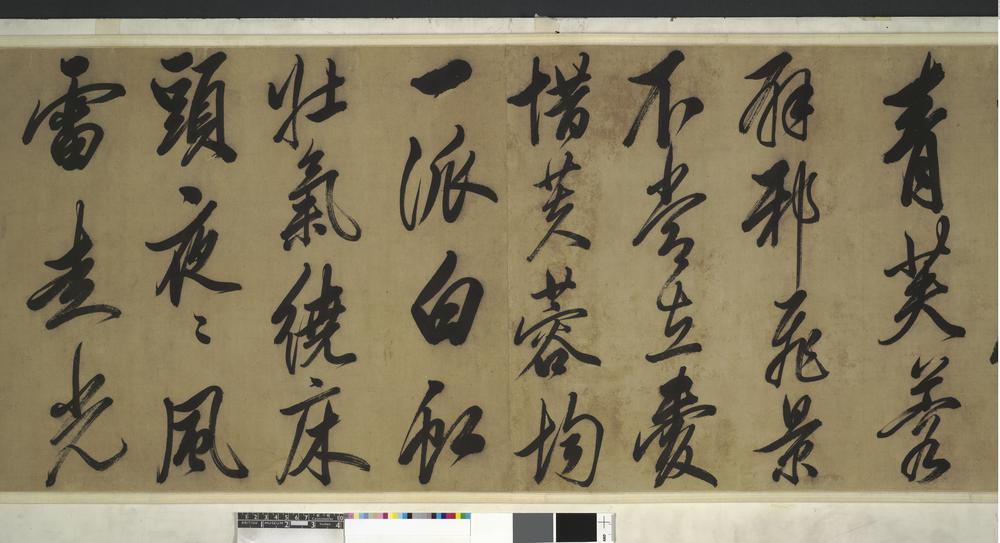 青芙蓉
邪飛景
不立愛
惜芙蓉均
一派白虹
壯氣繞床
頭夜〻風
雷走光
BRITISH MUSEUM